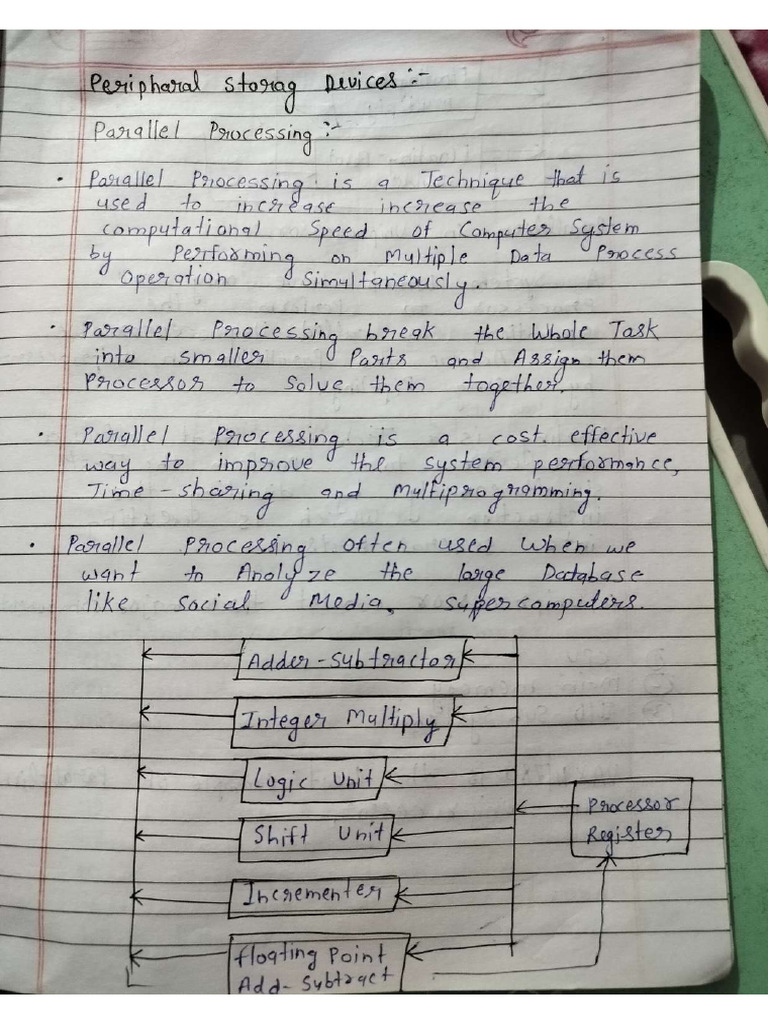 Peripharal Storag Devices :-
Parallel Processing :-
• Parallel Processing is a Technique that is
used to increase increase the
computational Speed of Computer System
by Performing on Multiple Data Process
Operation Simultaneously.
• Parallel Processing break the Whole Task
into smaller Parts and Assign them
Processor to Solve them together.
• Parallel Processing is a cost effective
way to improve the system performance,
Time-sharing and Multiprogramming.
• Parallel Processing often used When we
want to Analyze the large Database
like Social Media, Supercomputers.
Adder-Subtractor
Integer Multiply
Logic Unit
Shift Unit
Incrementer
Floating Point
Add-Subtract
Processor
Register